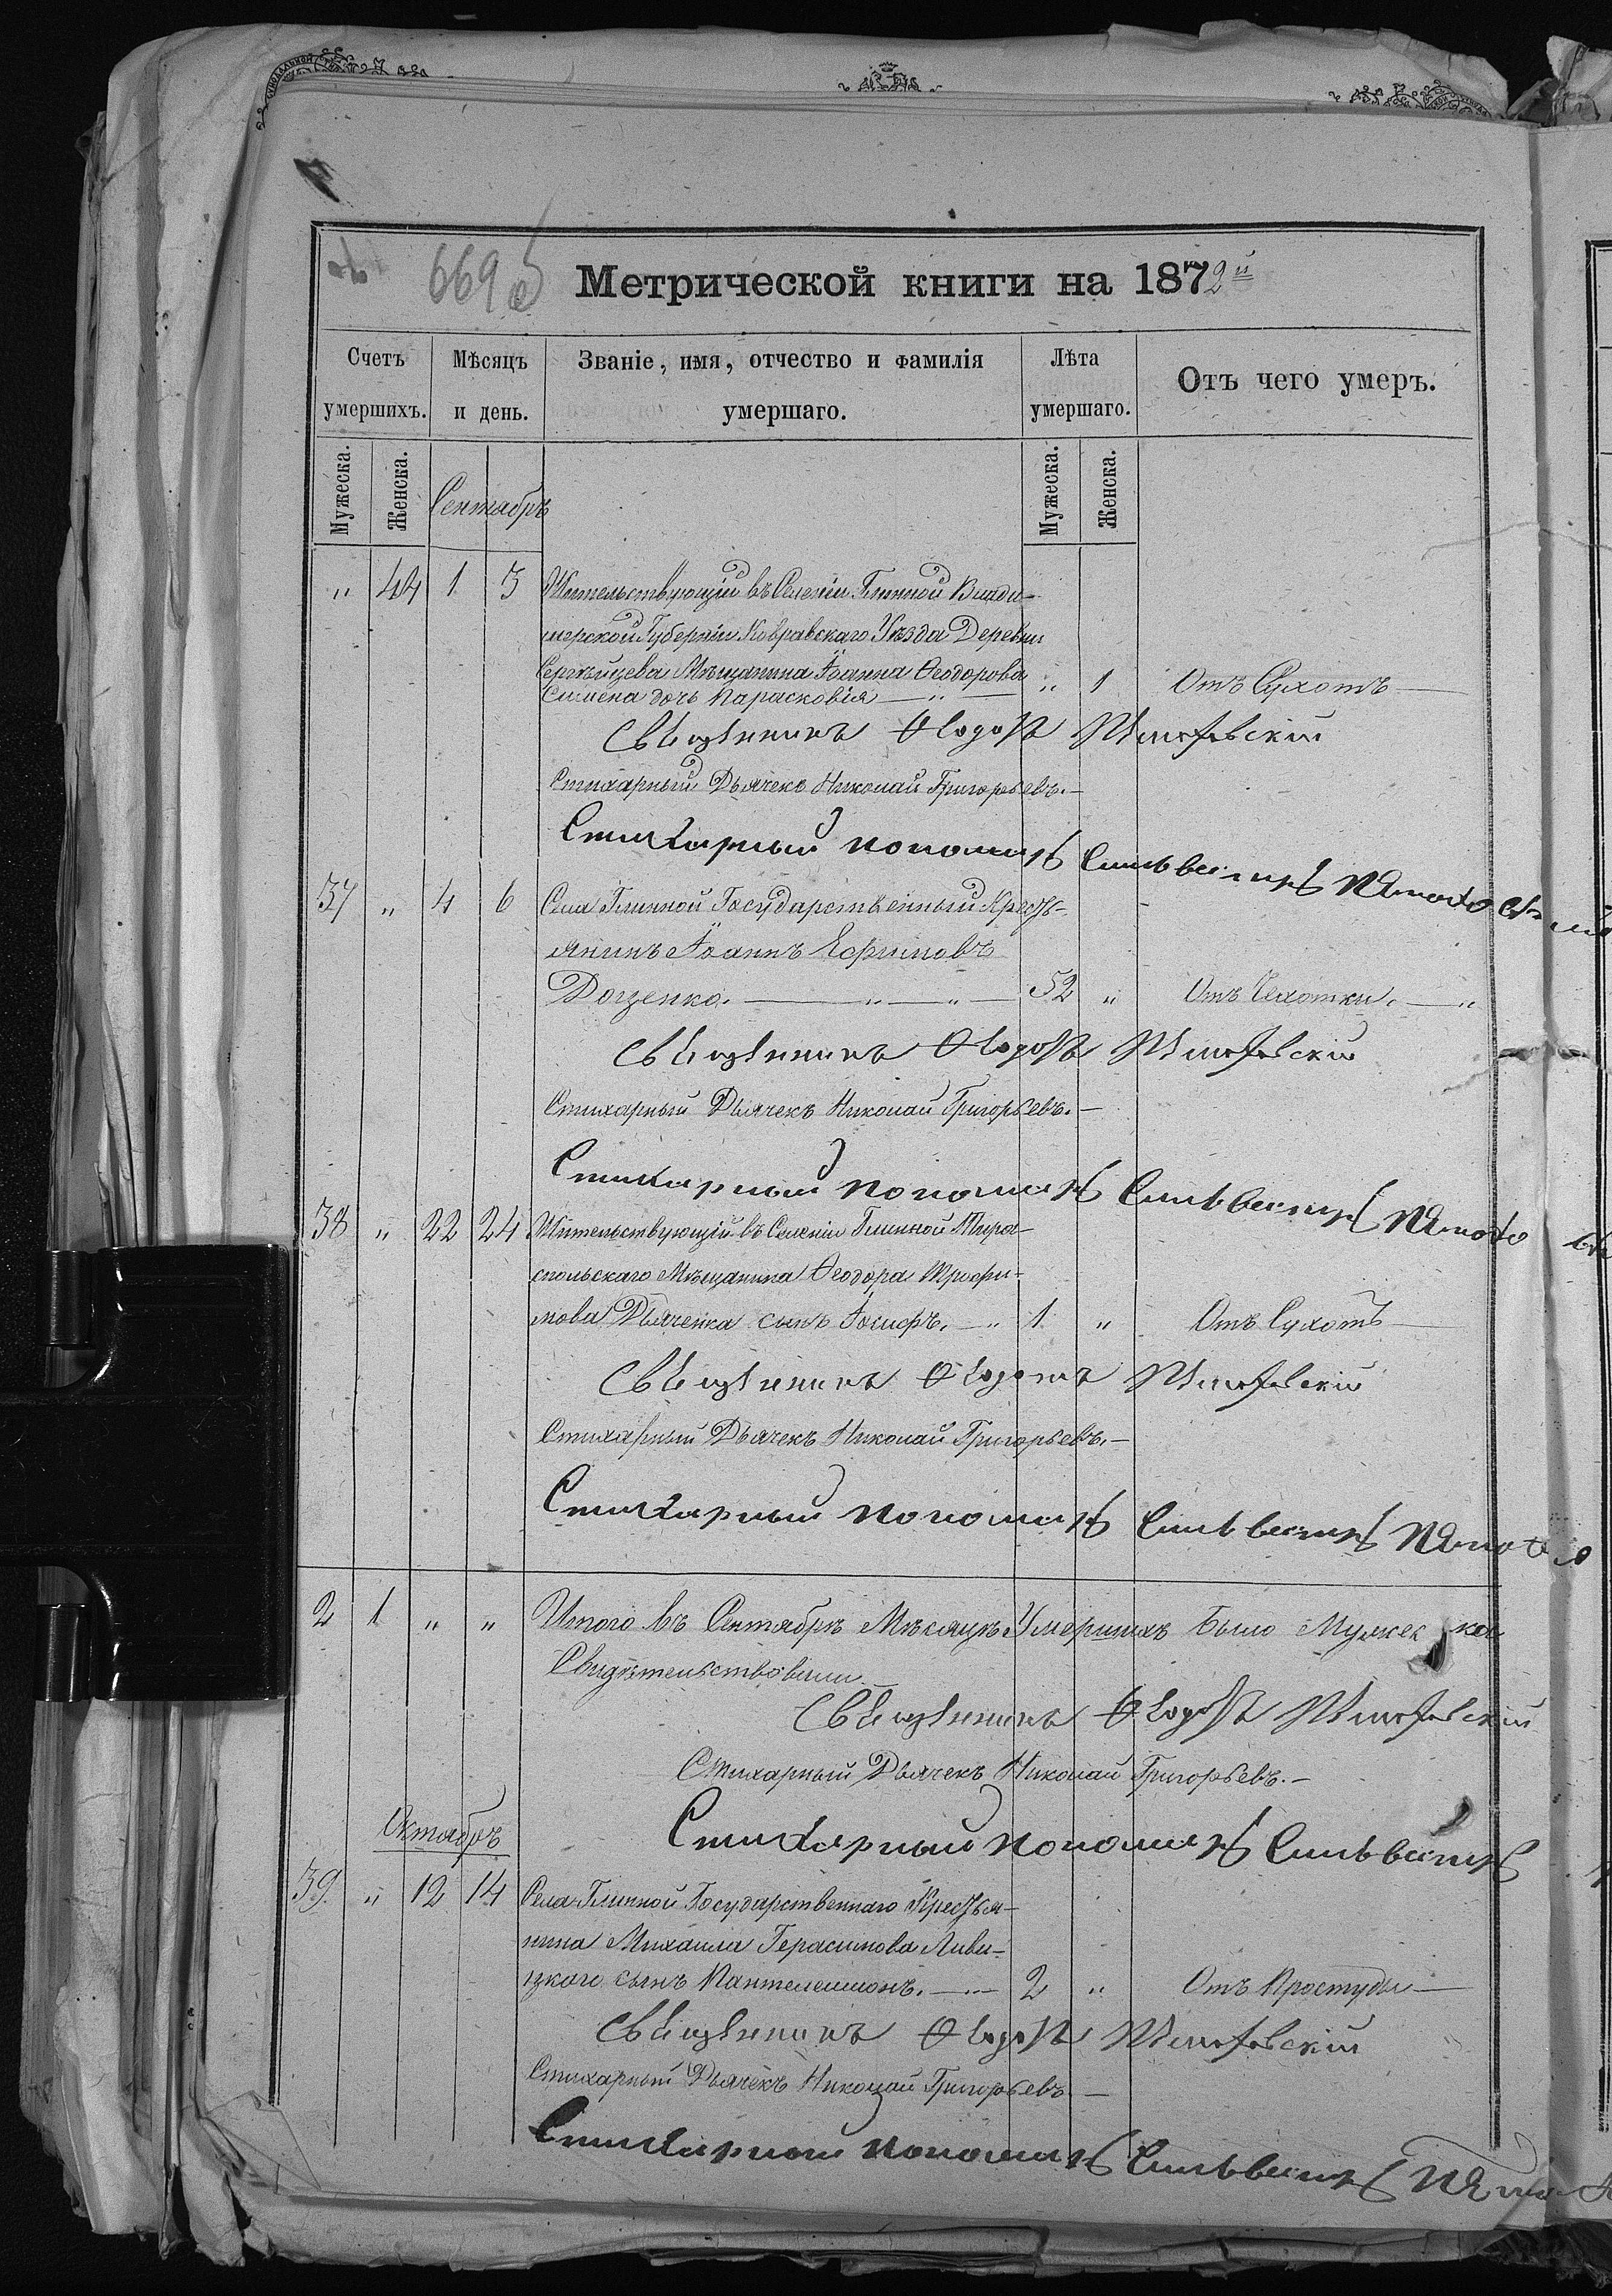 669 об
Метрической книги на 1872й
Счетъ умершихъ.
Мѣсяцъ и день.
Званіе, имя, отчество и фамилія умершаго.
Лѣта умершаго.
Отъ чего умеръ.
Мужеска. Женска. Мужеска. Женска.
Сентябрь
" 44 1 3 Жительствующій въ Селеніи Глинной Влади-
мірской Губерніи Ковравскаго Уѣзда Деревни
Мѣщанина Іоанна Ѳеодорова
Симена дочь Парасковія " 1 Отъ Сухотъ
Священникъ Ѳеодотъ
Стихарный Дьячекъ Николай Григорьевъ.
Стихарный пономарь Сильвестръ
37 " 4 6 Села Глинной Государственный Кресть-
янинъ Іоаннъ Ефимовъ
Доценко. " " 52 " Отъ Чехотки. "
Священникъ Ѳеодотъ
Стихарный Дьячекъ Николай Григорьевъ.
Стихарный пономарь Сильвестръ
38 " 22 24 Жительствующій въ Селеніи Глинной Тира-
спольскаго Мѣщанина Ѳеодора Трофи-
мова Дьяченка сынъ Іосифъ. " 1 " Отъ Сухотъ
Священникъ Ѳеодотъ
Стихарный Дьячекъ Николай Григорьевъ.
Стихарный пономарь Сильвестръ
2 1 " " Итого въ Сентябрѣ Мѣсяцѣ Умершихъ было Мужеска
Свидѣтельствовали
Священникъ Ѳеодотъ
Стихарный Дьячекъ Николай Григорьевъ.
Стихарный пономарь Сильвестръ
Октябрь
39 " 12 14 Села Глинной Государственнаго Крестья-
нина Михаила ГерасимоваЛиви-
цкаго сынъ Пантелеимонъ. " 2 " Отъ Простуды
Священникъ Ѳеодотъ
Стихарный Дьячекъ Николай Григорьевъ
Стихарный пономарь Сильвестръ